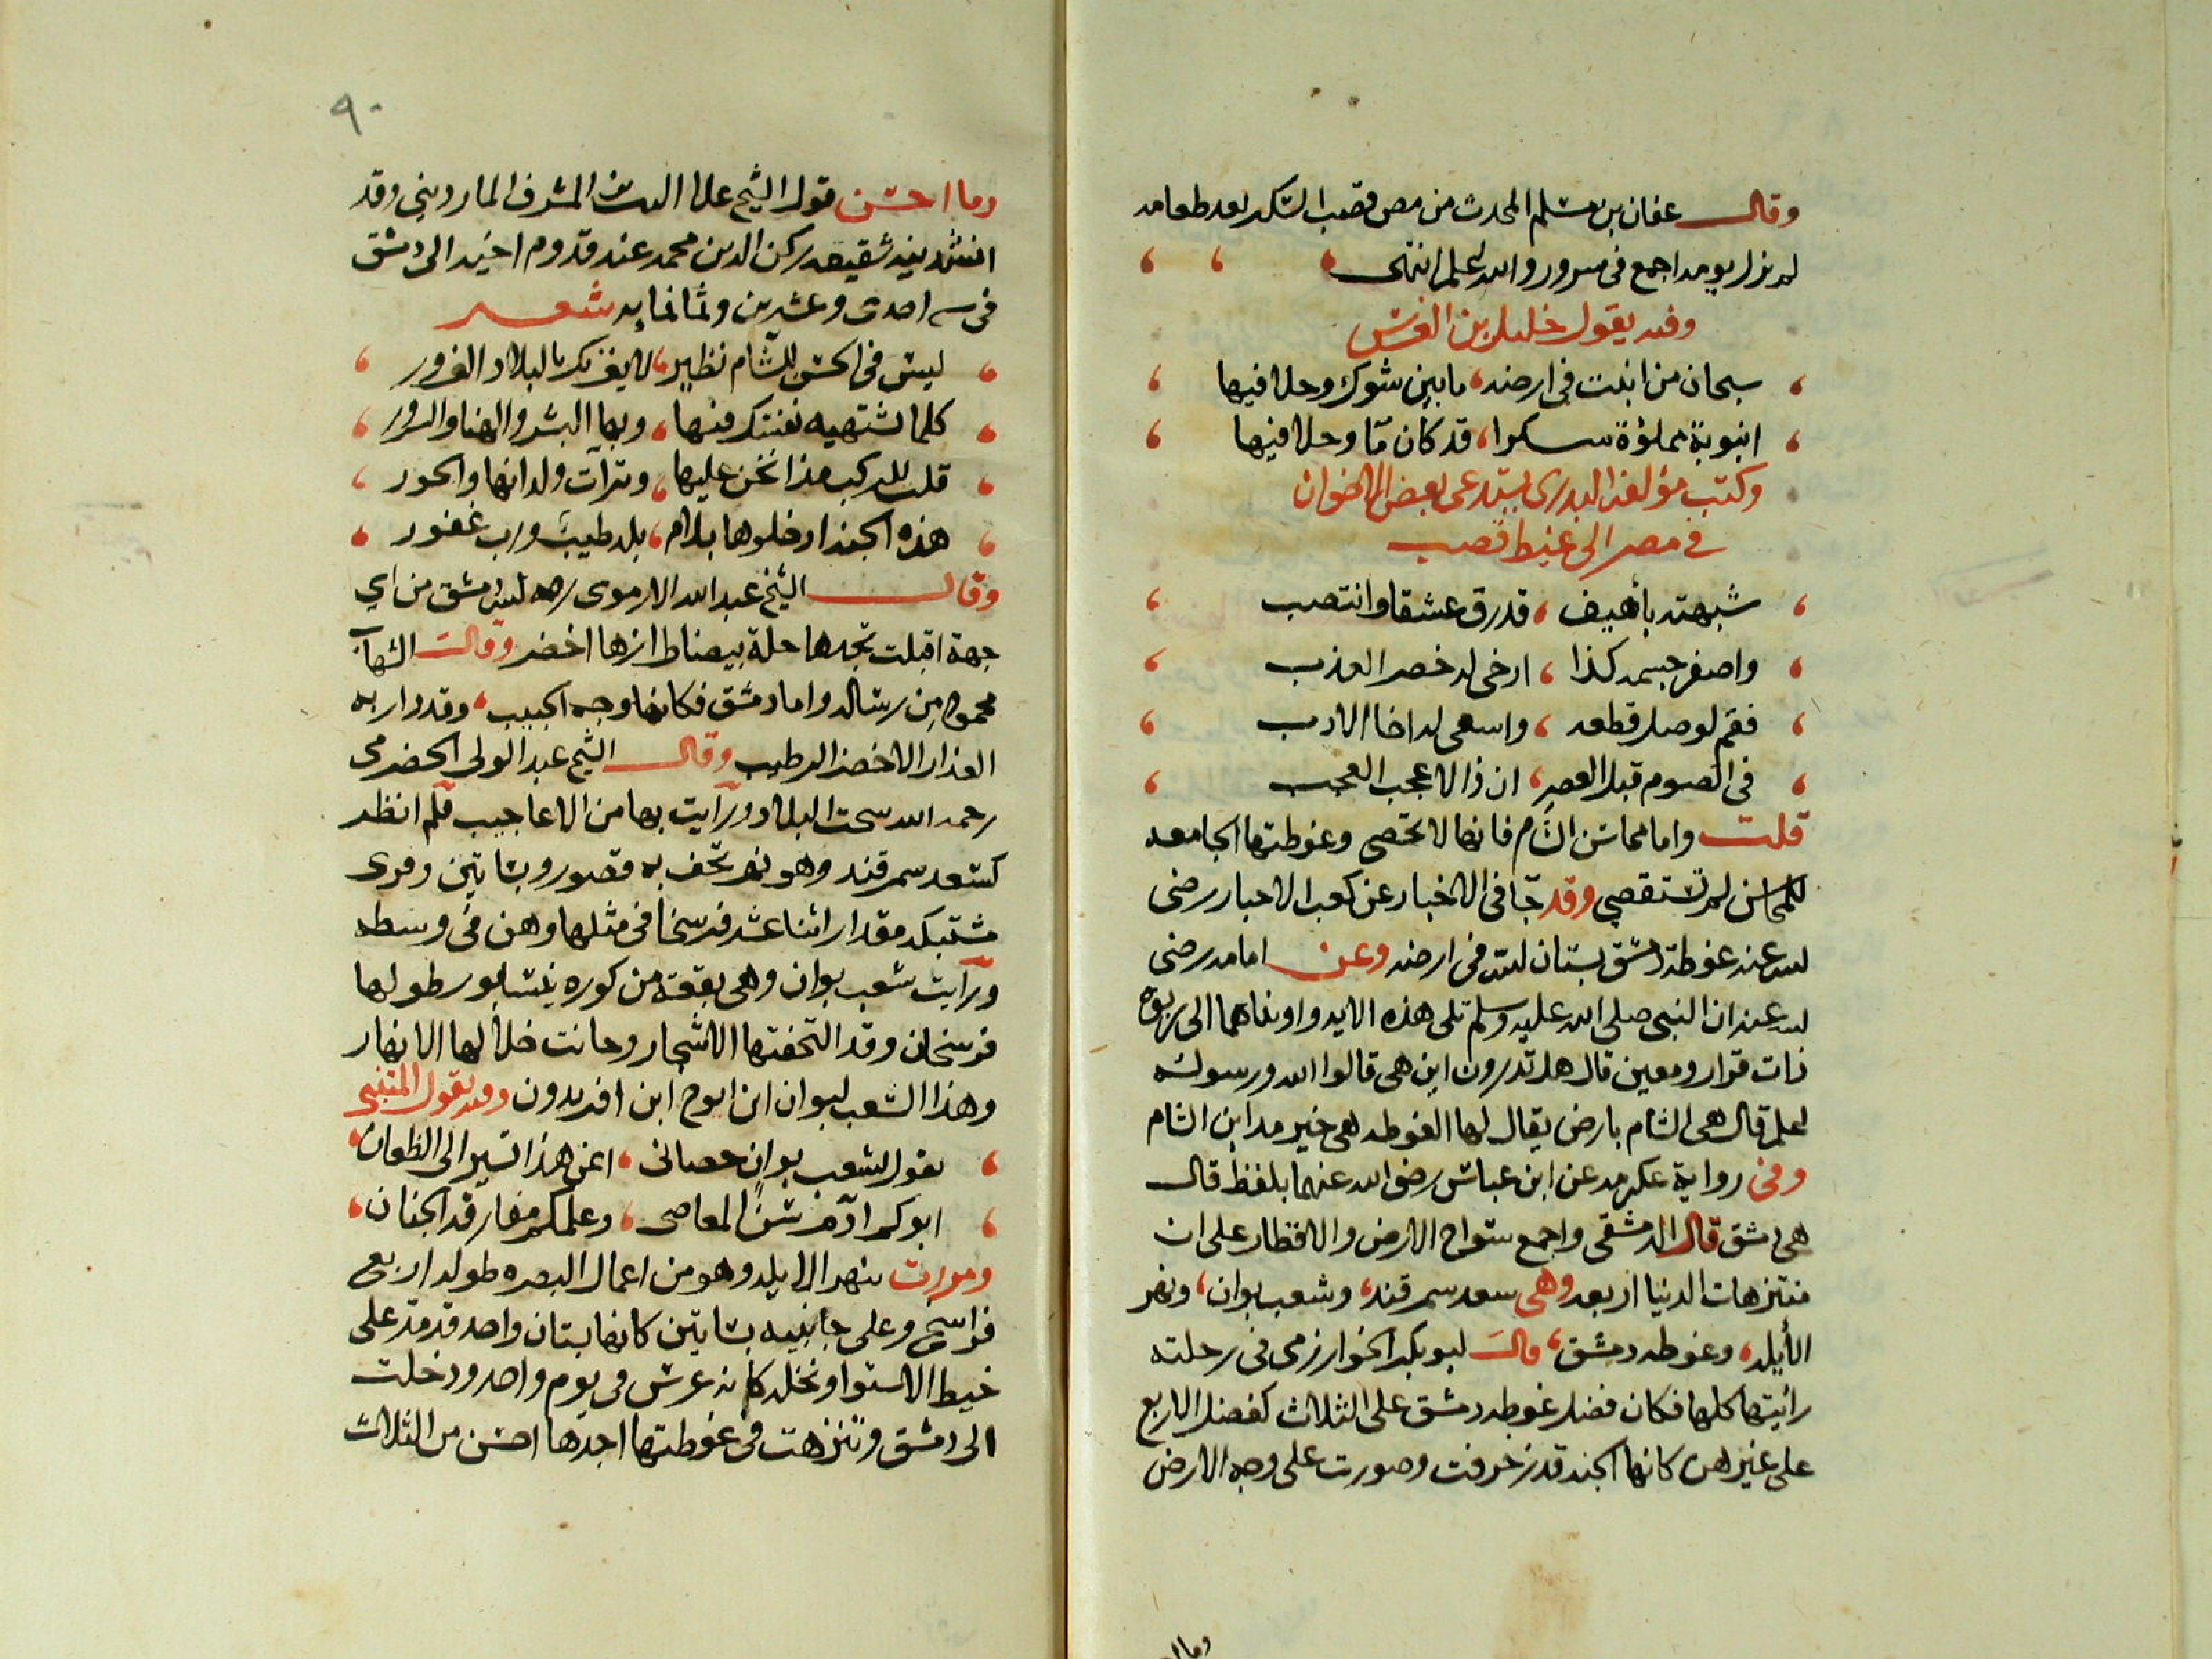 وقال عفان بن مسلم المحدث من مص قصب السكر بعد طعامه
لم يزل يومه اجمع في سرور والله اعلم انتهى
وفيه يقول خليل بن الغرس
سبحان من انبت في ارضه ، ما بين شوك وحلا فيها
انبوبة مملؤة سكرا ، قد كان مّا وحلا فيها
وكتب مؤلفه البدري يستدعى بعض الاخوان
في مصر الى غيط قصب
شبهته بأهيف ، قد رق عشقا وانتصب
واصفر جسمه كذا ، ارخى له خصر العذب
فقم لوصل قطعه ، واسعى له اخا الادب
في الصوم قبل العصر ، ان ذا لا عجب العجب
قلت واما محاسن الشام فانها لا تحصى وغوطتها الجامعه
للمحاسن لم تستقصي وقد جا في الاخبار عن كعب الاحبار رضى
الله عنه غوطة دمشق بستان الله في ارضه وعن امامه رضى
الله عنه ان النبى صلى الله عليه وسلم تلى هذه الايه واويناهما الى ربوة
ذات قرار ومعين قال هل تدرون اين هى قالوا الله ورسوله
اعلم قال هى الشام بارض يقال لها الغوطه هى خير مداين الشام
وفى رواية عكرمه عن ابن عباس رضى الله عنهما بلفظ قال
هى دمشق قال الدمشقى واجمع سواح الارض والاقطار على ان
منتزهات الدنيا اربعه وهى سعد سمرقند ، وشعب بوان ، ونهر
الأيله ، وغوطه دمشق ، قال ابو بكر الخوارزمى فى رحلته
رأيتها كلها فكان فضل غوطه دمشق على الثلاث كفضل الاربع
على غيرهن كانها الجنه قد زخرفت وصورت على وجه الارض
وما ا
٩٠
وما احسن قول الشيخ علا الدين المشرف المارديني وقد
انشدنيه شقيقه ركن الدين محمد عند قدوم اخيه الى دمشق
فى سنه احدى وعشرين وثمانمايه شعر
ليس فى الحسن للشام نظير ، لا يغرنك بالبلاد الغرور
كلما تشتهيه نفسك فيها ، وبها البشر والهنا والسرور
قلت للركب مذ انخن عليها ، وترآت ولدانها والحور
هذه الجنه ادخلوها بلام ، بلد طيب ورب غفور
وقال الشيخ عبد الله الارموى رحمه الله دمشق من اي
جهة اقبلت تجدها حلة بيضا طرازها اخضر وقال الشهاب
محمود من رساله واما دمشق فكانها وجه الحبيب ، وقد دار به
العذار الاخضر الرطيب وقال الشيخ عبد الولى الحضرمى
رحمه الله سحت البلاد ورايت بها من الاعاجيب فلم انظر
كسعد سمرقند وهو نهر تحف به قصور وبساتين وقرى
مشتبكه مقدار اثنا عشر فرسخا فى مثلها وهن فى وسطه
ورأيت شعب بوان وهى بقعة من كوره نيسابور طولها
فرسخان وقد التحفتها الاشجار وجانت خلالها الانهار
وهذا الشعب لبوان ابن ايرج ابن افريدون وفيه يقول المتنبى
يقول لشعب بوان حصانى ، اعن هذا تسير الى الطعان
ابوكم ادم سن المعاصى ، وعلمكم مفارقة الجنان
ومررت بنهر الايله وهو من اعمال البصره طوله اربع
فراسخ وعلى جانبيه بساتين كانها بستان واحد قد مد على
خيط الاستوا ونخله كانه غرش فى يوم واحد ودخلت
الى دمشق وتنزهت فى غوطتها اجدها احسن من الثلاث